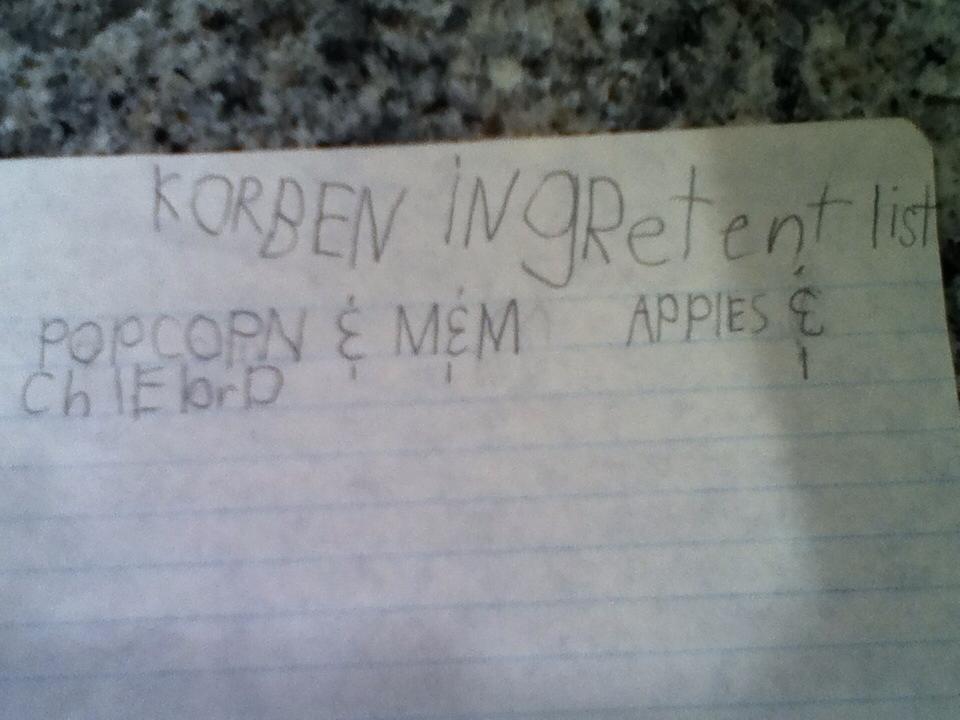 KORBEN iNgRetent list
POPCORN & M&M APPlES &
ChlEbrD